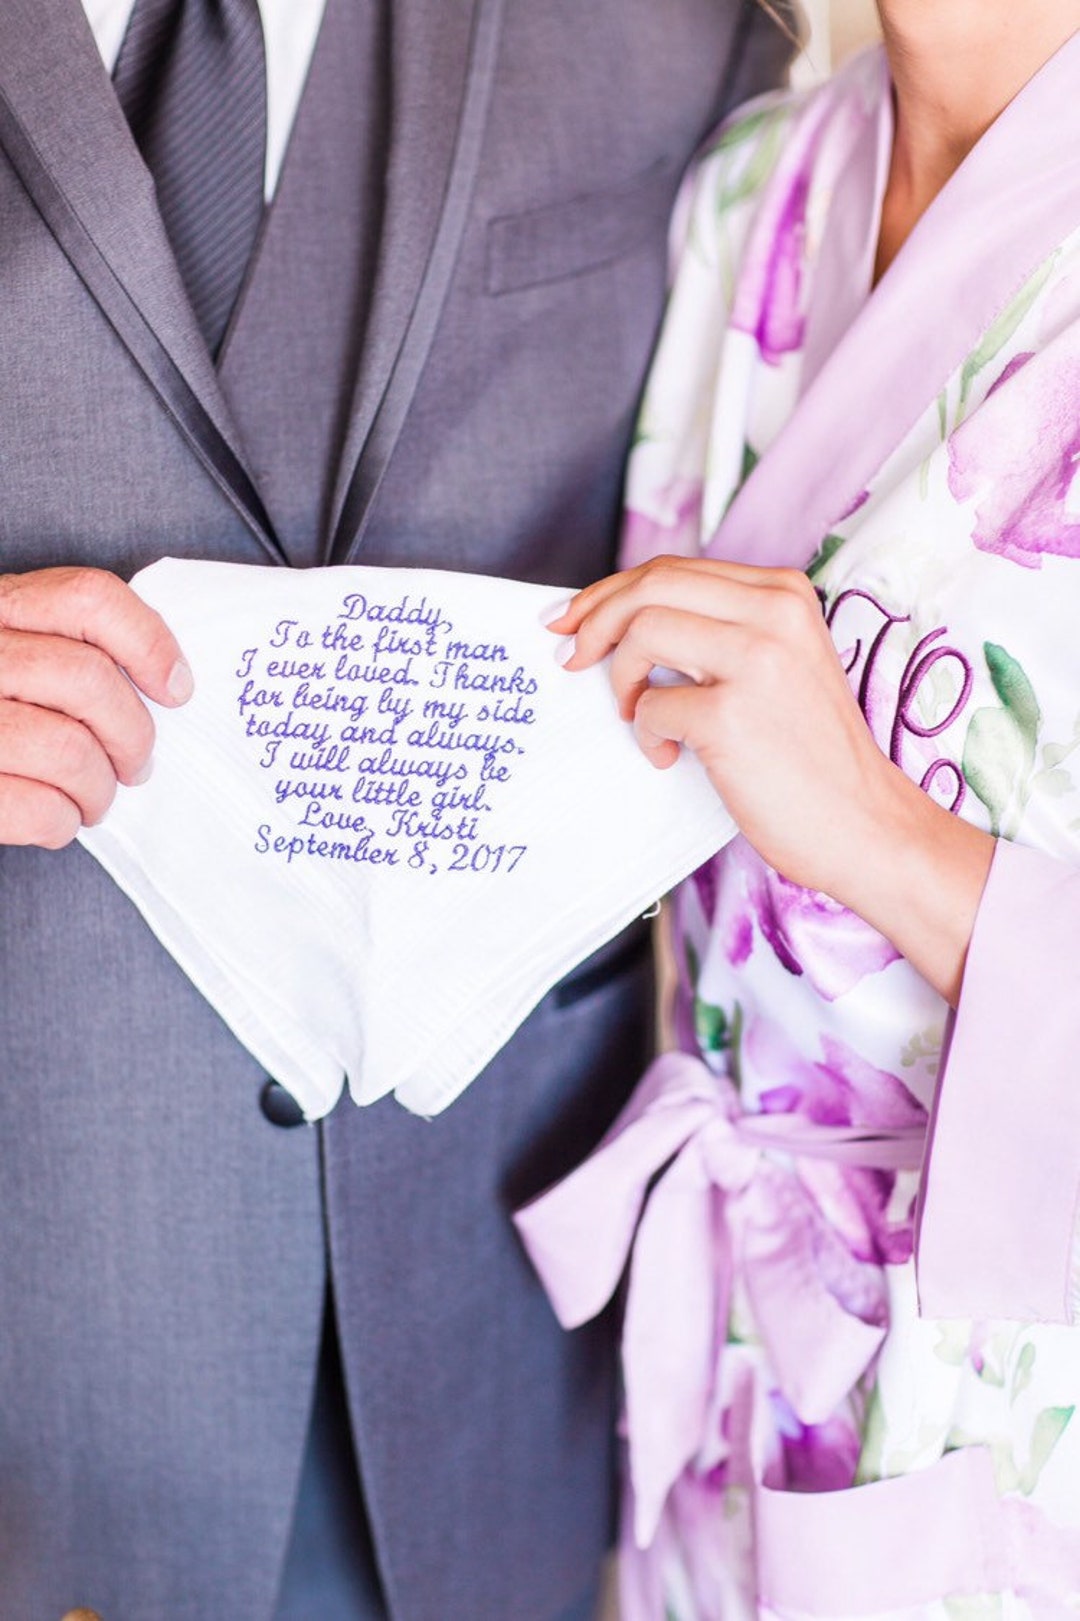 Daddy,
To the first man
I ever loved. Thanks
for being by my side
today and always.
I will always be
your little girl.
Love, Kristi
September 8, 2017